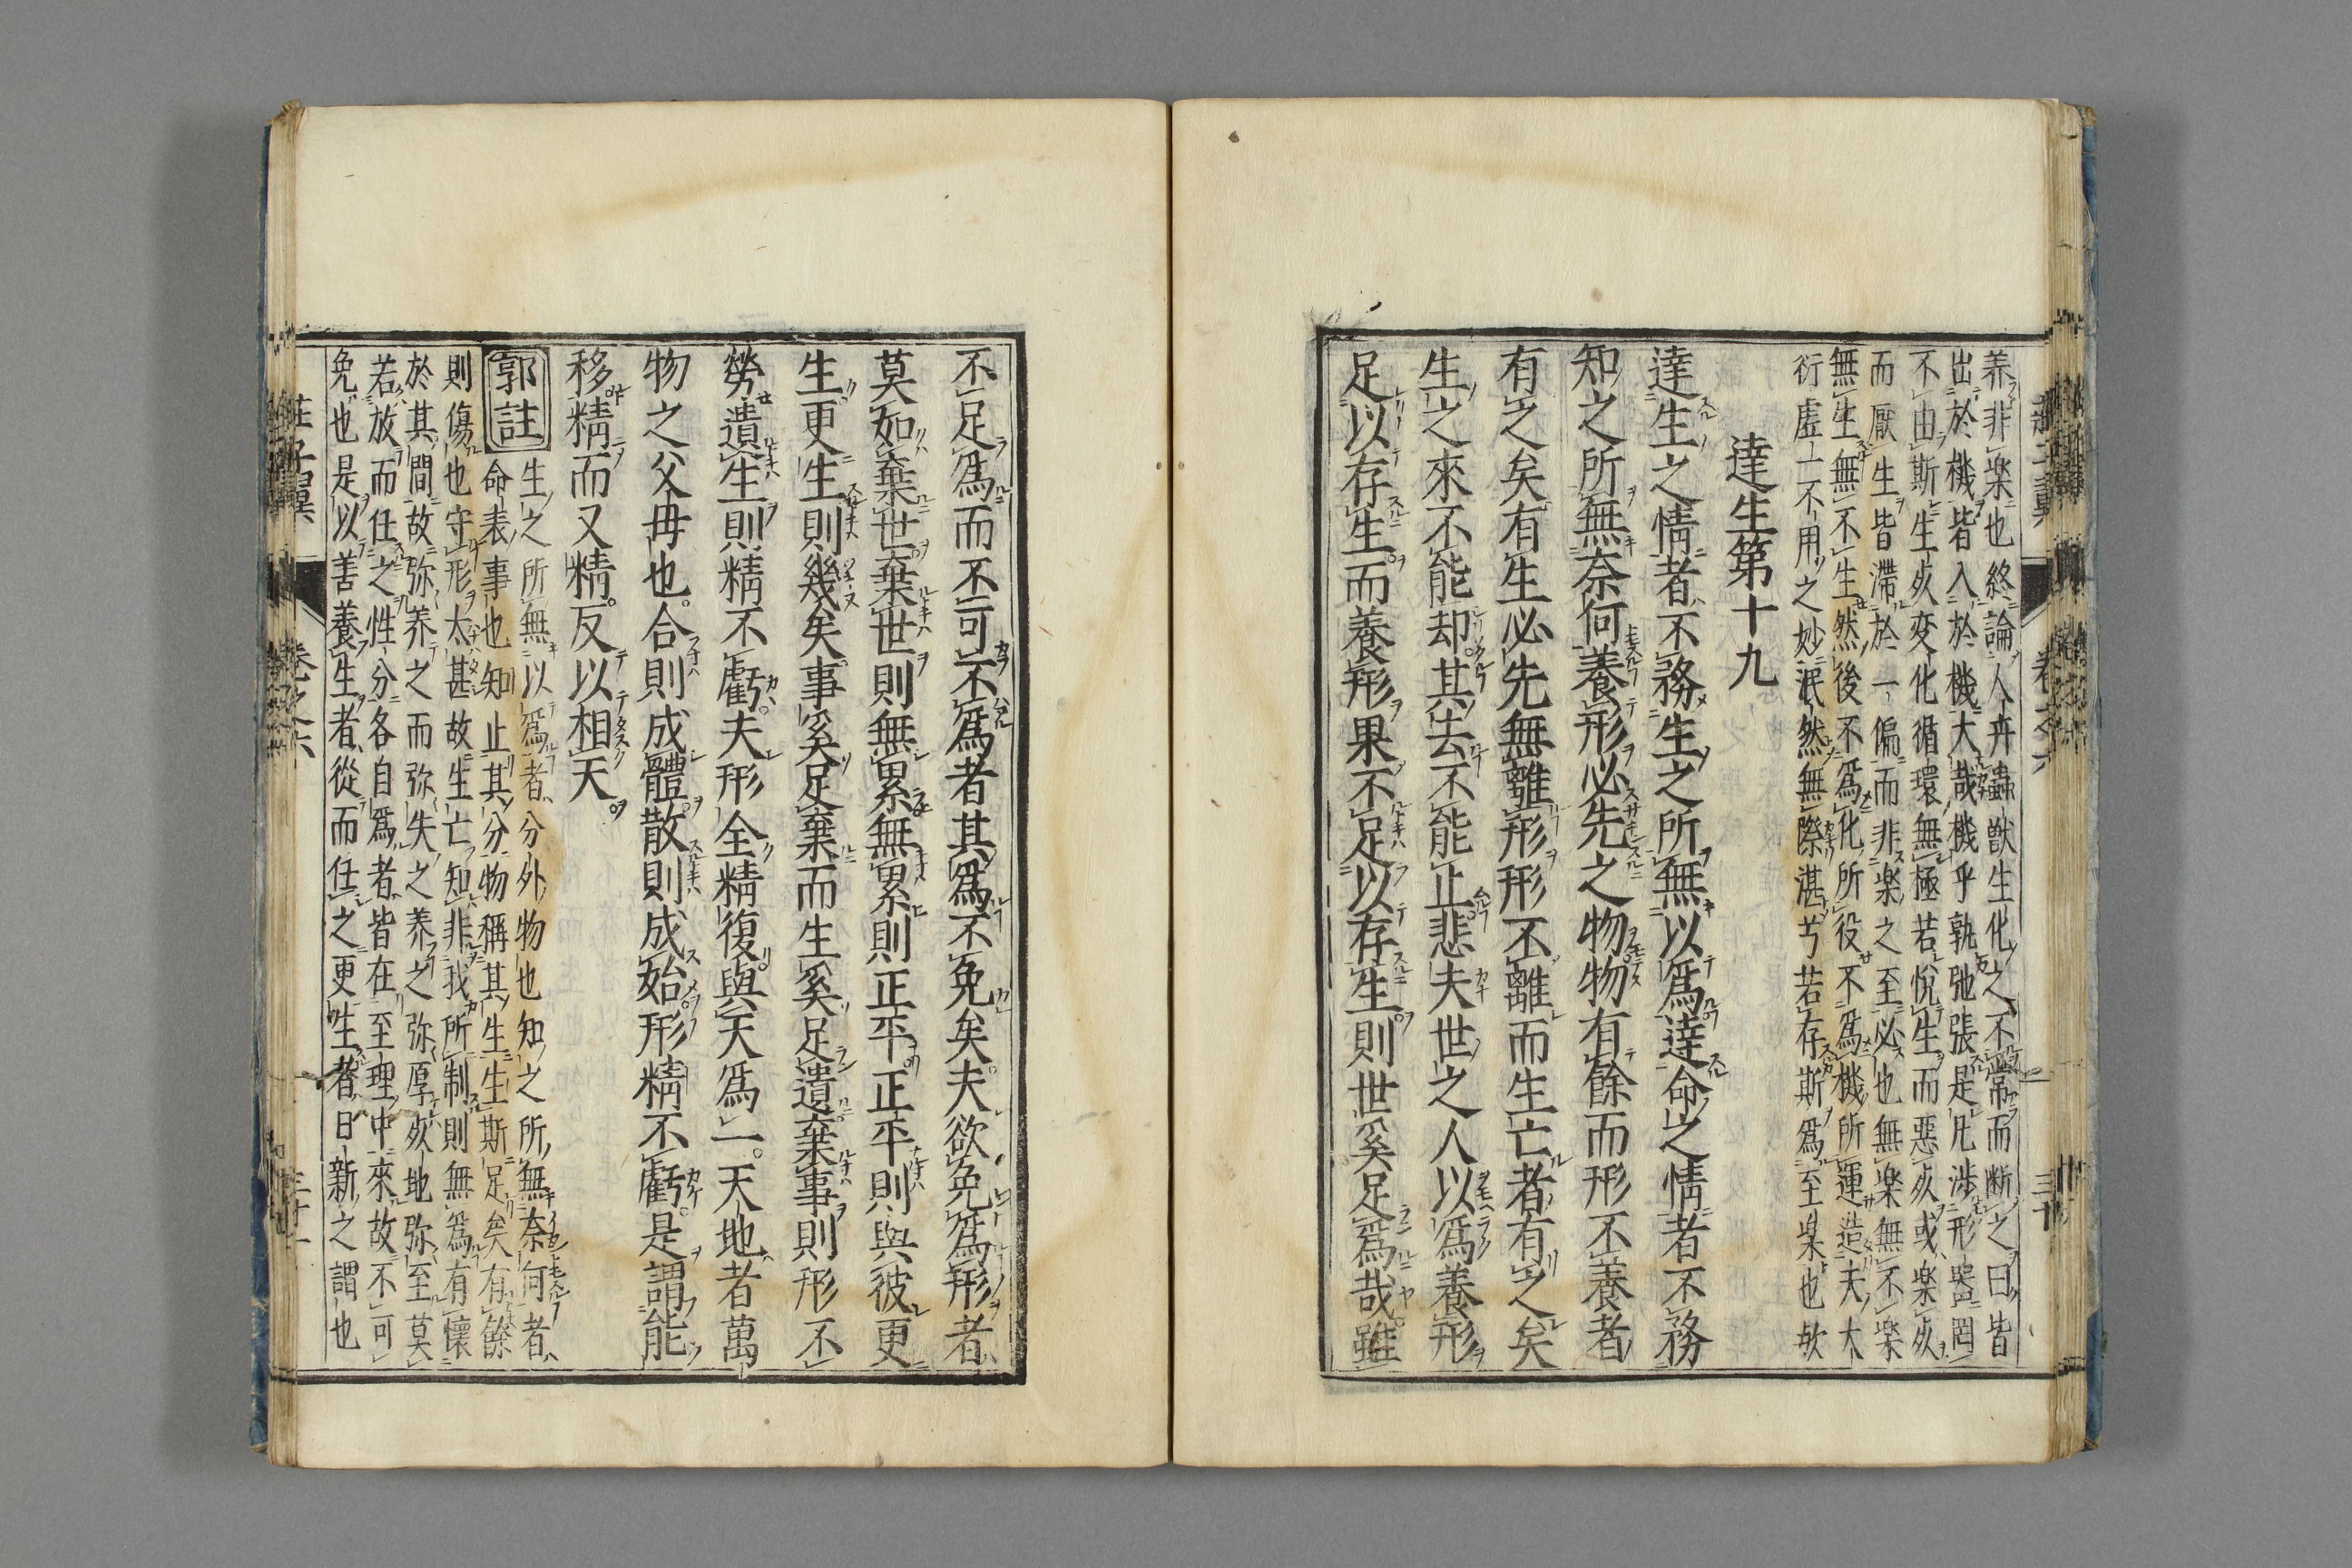 养非楽也終論人卉蟲獣生化之不常而断之曰皆
出於機皆入於機大哉機乎孰弛張是凡渉形器罔
不由斯生死変化循環無極若悅生而惡死或楽死
而厭生皆滞於一偏而非楽之至必也無楽無不楽
無生無不生然後不爲化所役不爲機所運造夫大
衍虛一不用之妙泯然無際湛兮若存斯爲至楽也歟
達生第十九
達生之情者不務生之所無以爲達命之情者不務
知之所無奈何養形必先之物物有餘而形不養者
有之矣有生必先無離形形不離而生亡者有之矣
生之來不能却其去不能止悲夫世之人以爲養形
足以存生而養形果不足以存生則世奚足爲哉雖
不足爲而不可不爲者其爲不免矣夫欲免爲形者
莫如棄世棄世則無累無累則正平正平則與彼更
生更生則幾矣事奚足棄而生奚足遺棄事則形不
勞遺生則精不虧夫形全精復與天爲一天地者萬
物之父母也合則成體散則成始形精不虧是謂能
移精而又精反以相天
郭註 生之所無以爲者分外物也知之所無奈何者
命表事也知止其分物稱其生生斯足矣有餘
則傷也守形太甚故生亡知非我所制則無爲有懷
於其間故弥养之而弥失之养之弥厚死地弥至莫
若放而任之性分各自爲者皆在至理中來故不可
免也是以善養生者從而任之更生者日新之謂也
莊子翼 卷之六 三十一